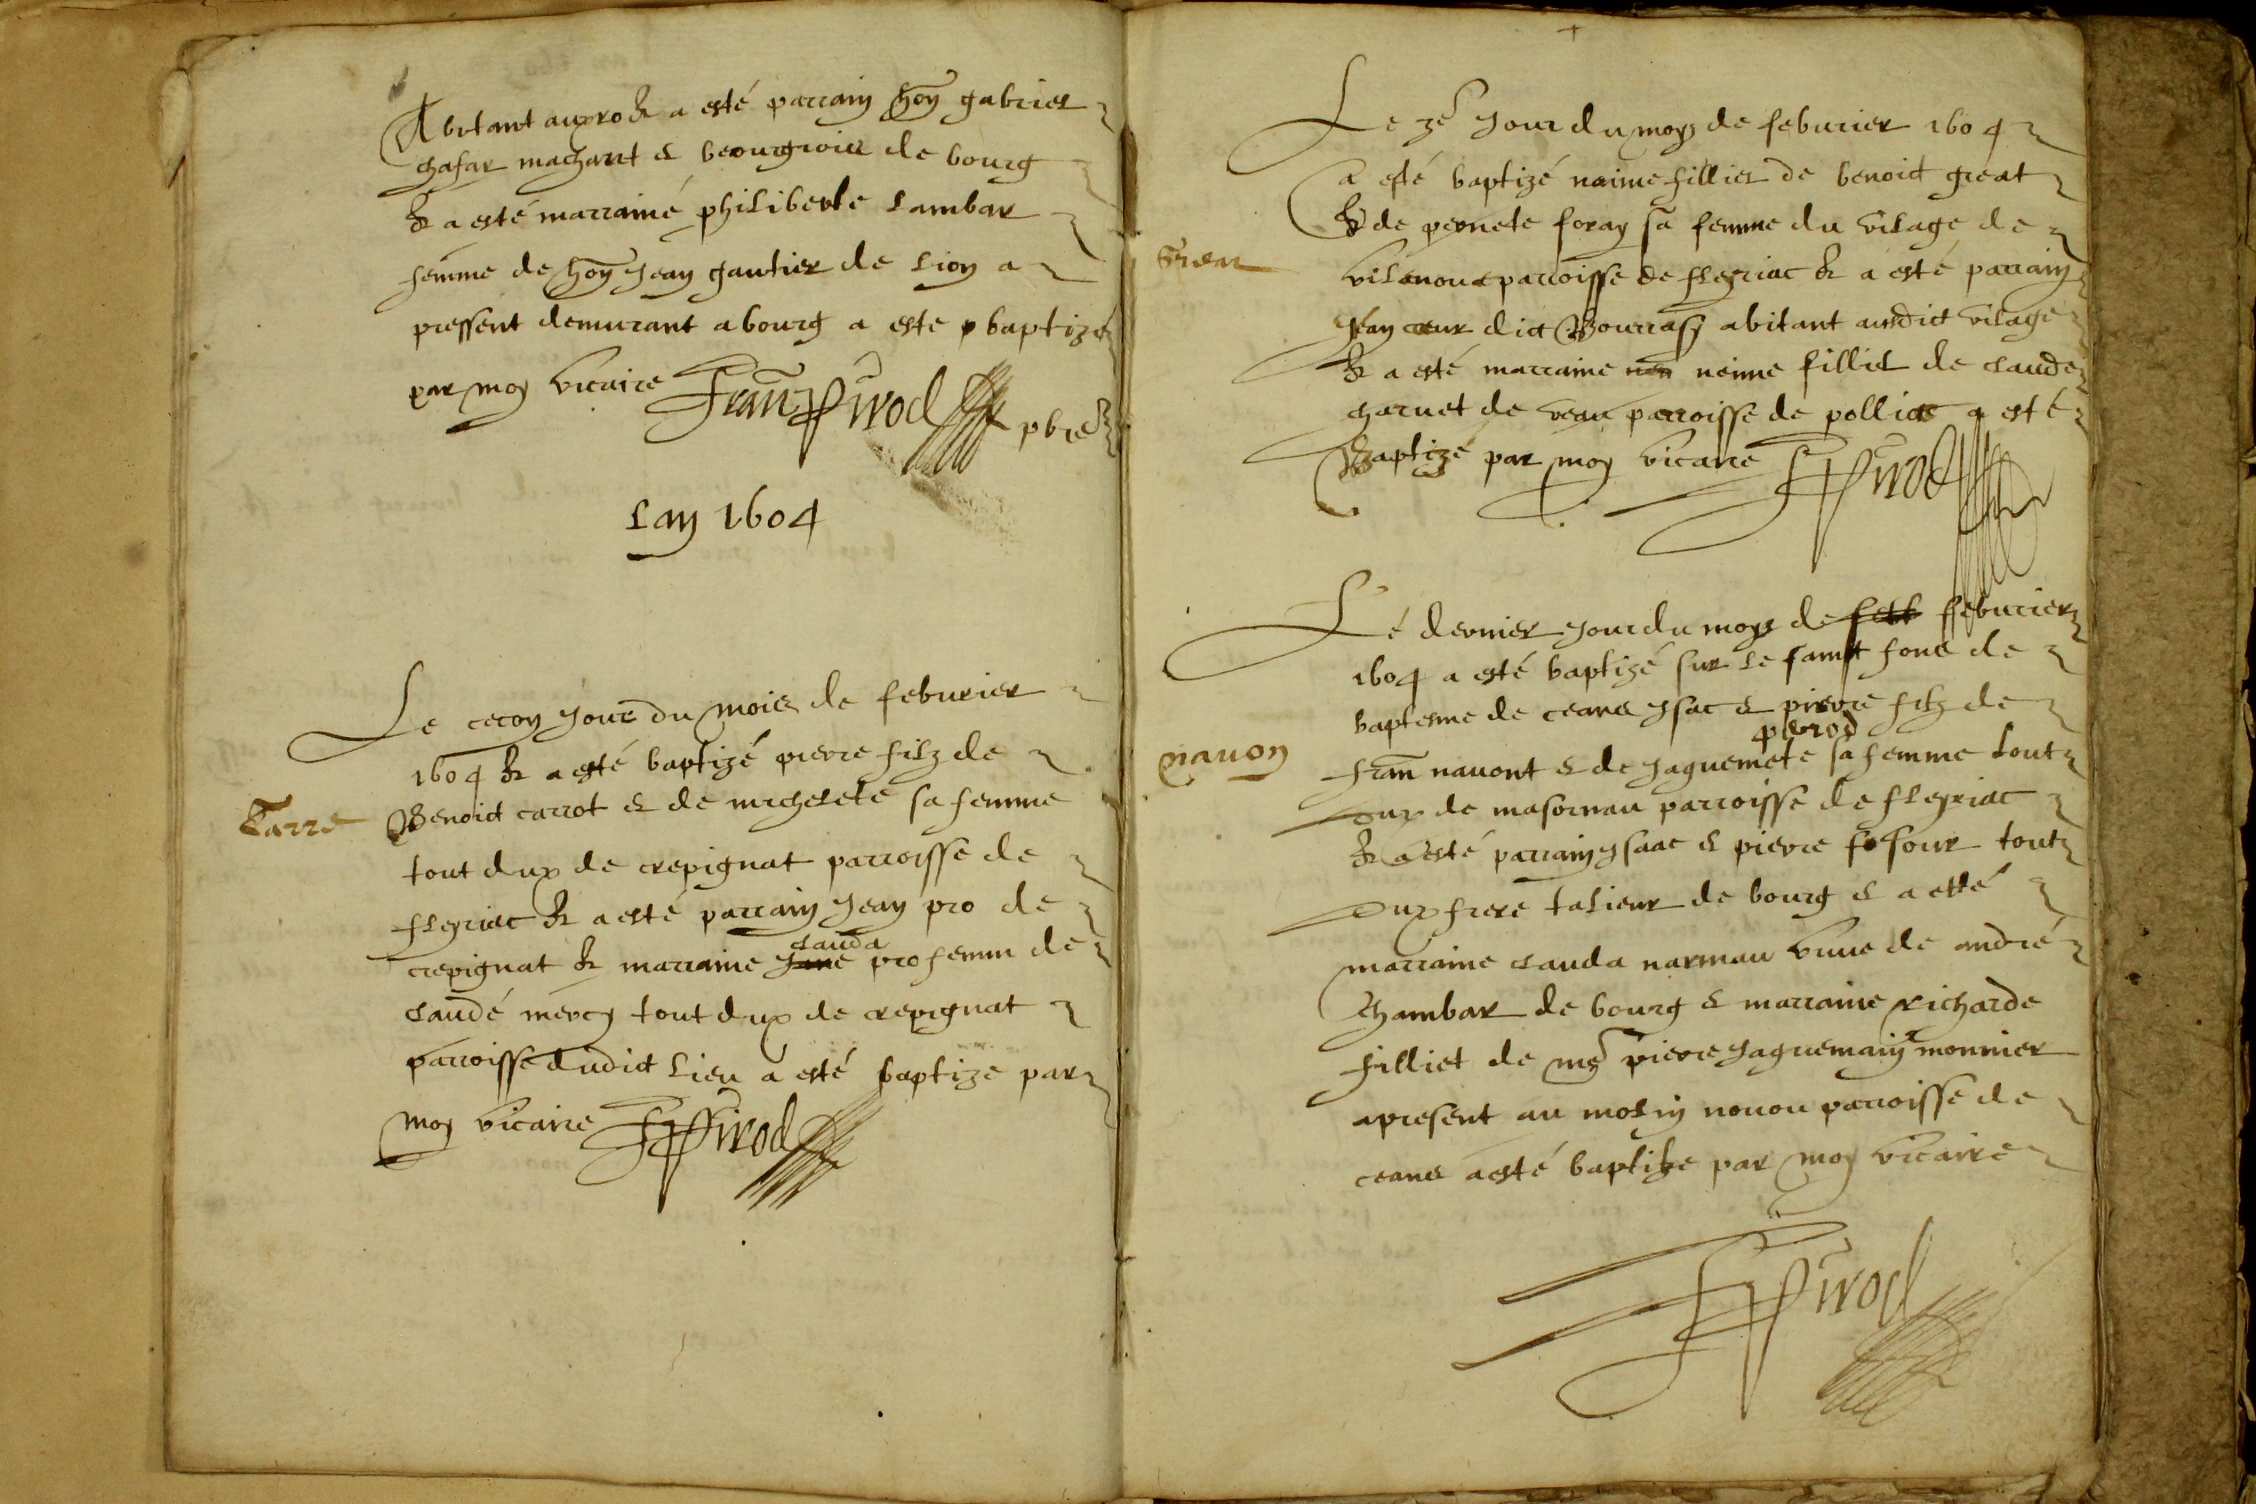 Abitant auxro & a esté parrain hon gabriel
chafar machant et beourgiois de bourg
& a esté marraine philiberte lambar
femme de hon Jean gautier de lion a
pressent demurant a bourg a este baptizé
par moy vicaire Fran Pirod pbre
Lan 1604
Le cecon Jour du mois de feburier
1604 & a esté baptizé pierre filz de
Carre
Benoict carrot et de michelete sa femme
tout dux de crepignat parroisse de
fleyriac & a esté parrain Jean pro de
crepignat & marraine clauda pro femm de
claude mercy tout dux de crepignat
parroisse dudict lieu a esté baptize par
moy vicaire F Pirod
Le Jour du moys de feburier 1604
a esté baptizé naime filliet de benoict great
& de pernete foray sa femme du vilage de
Grear
vilanoue parroisse de fleyriac & a esté parrain
Jean cour dict Bourrasy abitant audict vilage
& a esté marraine neime filliet de claude
charuet de veau parroisse de polliac a esté
Baptizé par moy vicaire F Pirod
Le dernier Jour du moys de feburier
1604 a esté baptizé sur le sainct fons de
baptesme de ceans Isac et pierre filz de
perod
navon
fran navont et de Jaguemete sa femme tout
dux de masornau parroisse de fleyriac
& a esté parrain Isaac et pierre fosour tout
dux frere talieur de bourg et a esté
marraine clauda narmau viuve de andre
Chambar de bourg et marraine richarde
filliet de me pierre Jaguemain monnier
apresent au molin novou parroisse de
ceans a esté baptize par moy vicaire
F Pirod